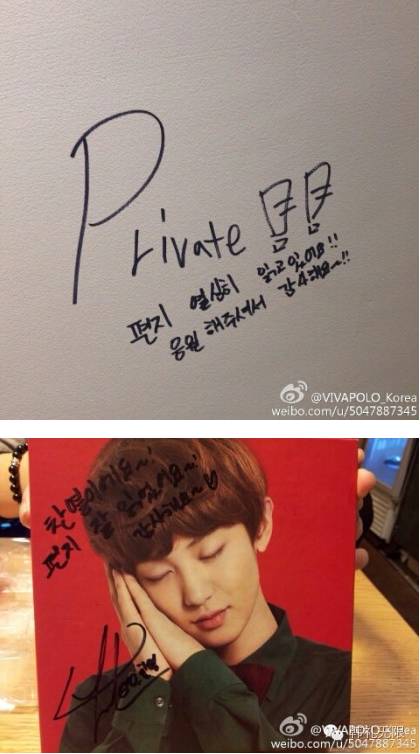 Private !!
편지 열심히 읽고있어요!!
응원 해주셔서 감사해요~!!
@VIVAPOLO_Korea
weibo.com/u/5047887345
찬열이에요~!
편지 잘 읽었어요~!
감사해요~♡
@VIVAPOLO_Korea
weibo.com/u/5047887345